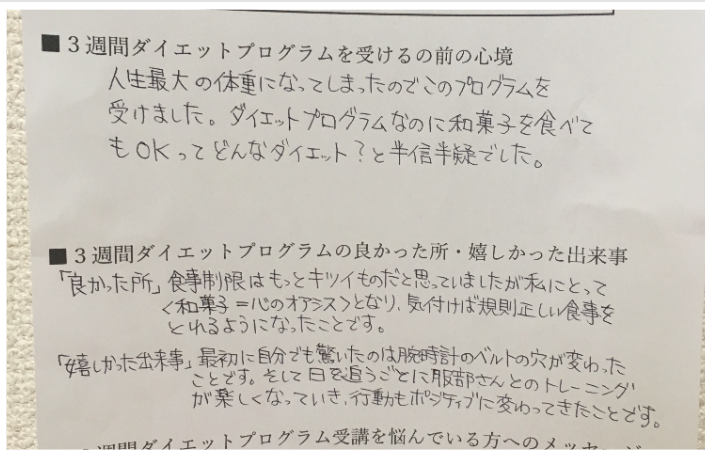 ■３週間ダイエットプログラムを受けるの前の心境
人生最大の体重になってしまったのでこのプログラムを
受けました。ダイエットプログラムなのに和菓子を食べて
もOKってどんなダイエット？と半信半疑でした。
■３週間ダイエットプログラムの良かった所・嬉しかった出来事
「良かった所」食事制限はもっとキツイものだと思っていましたが私にとって
<和菓子＝心のオアシス>となり、気付けば規則正しい食事を
とれるようになったことです。
「嬉しかった出来事」最初に自分でも驚いたのは腕時計のベルトの穴が変わった
ことです。そして日を追うごとに服部さんとのトレーニング
が楽しくなっていき、行動もポジティブに変わってきたことです。
週間ダイエットプログラム受講を悩んでいる方へのメッセージ